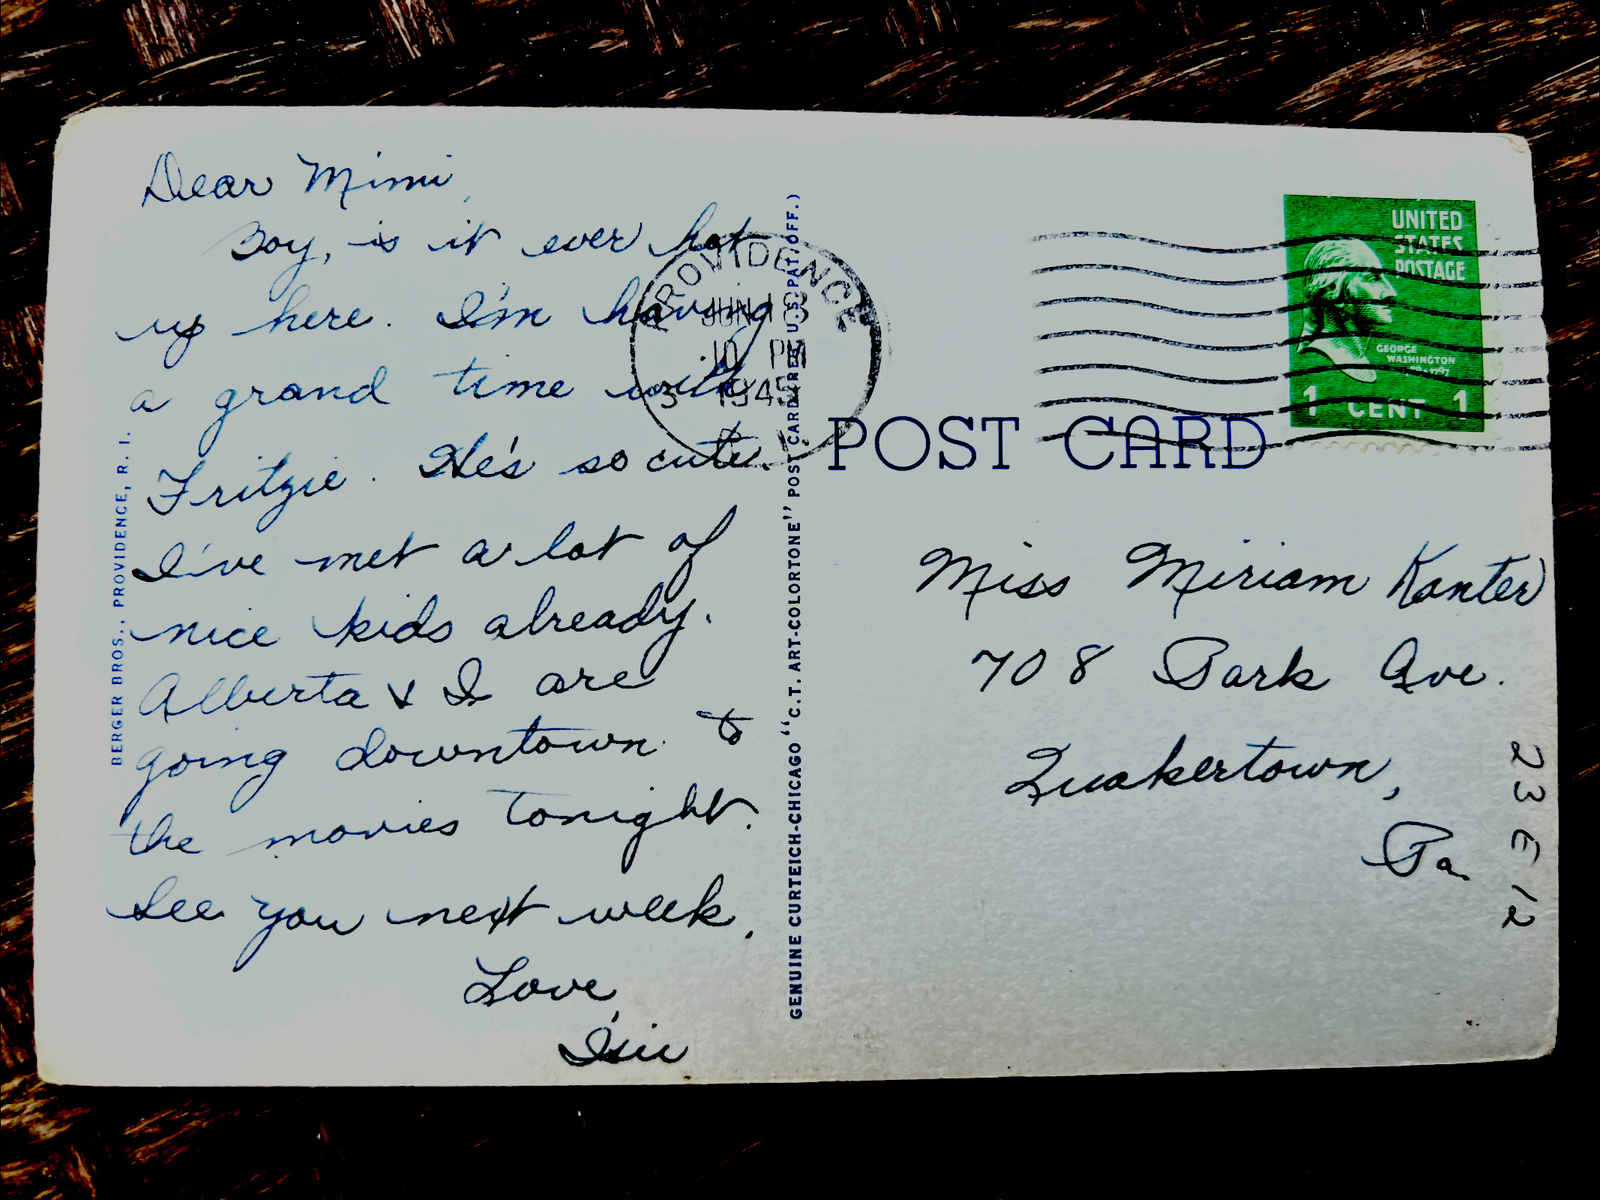 Dear Mimi,
Boy, is it ever hot
up here. I'm having
a grand time with
Fritzie. He's so cute.
I've met a lot of
nice kids already.
Alberta & I are
going downtown to
the movies tonight.
See you next week.
Love,
BERGER BROS., PROVIDENCE, R. I.
GENUINE CURTEICH-CHICAGO "C.T. ART-COLORTONE" POST CARD (REG. U.S. PAT. OFF.)
PROVIDENCE
JUN 18
10 PM
1945
R. I.
POST CARD
UNITED
STATES
POSTAGE
GEORGE
WASHINGTON
1 CENT 1
Miss Miriam Kanter
708 Park Ave.
Quakertown,
Pa.
23 E 12